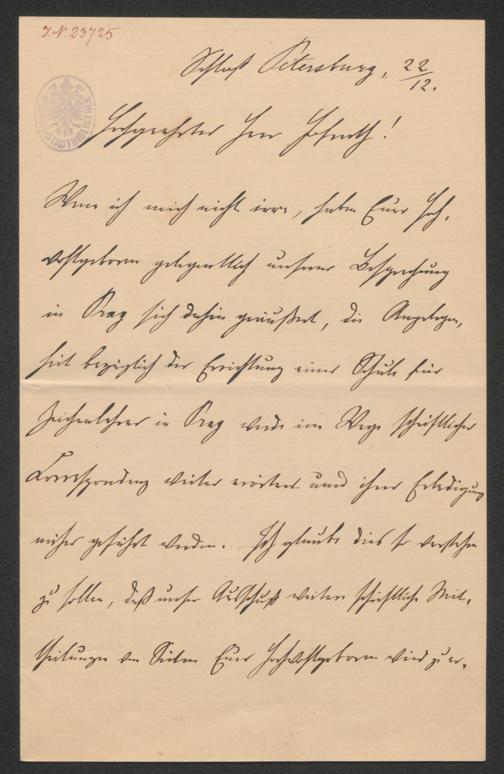 J. N. 23725
Schloß Petersburg, 22/12.
Hochgeehrter Herr Hofrath!
Wenn ich mich nicht irre, haben Euer Hoch-
wohlgeboren gelegentlich unserer Besprechung
in Prag sich dahin geäußert, die Angelegen-
heit bezüglich der Errichtung einer Schule für
Zeichenlehrer in Prag werde im Wege schriftlicher
Correspondenz weiter erörtert und ihrer Erledigung
näher geführt werden. Ich glaube dies so verstehen
zu sollen, daß unser Ausschuß weitere schriftliche Mit-
theilungen von Seiten Euer Hochwohlgeboren wird zu er-